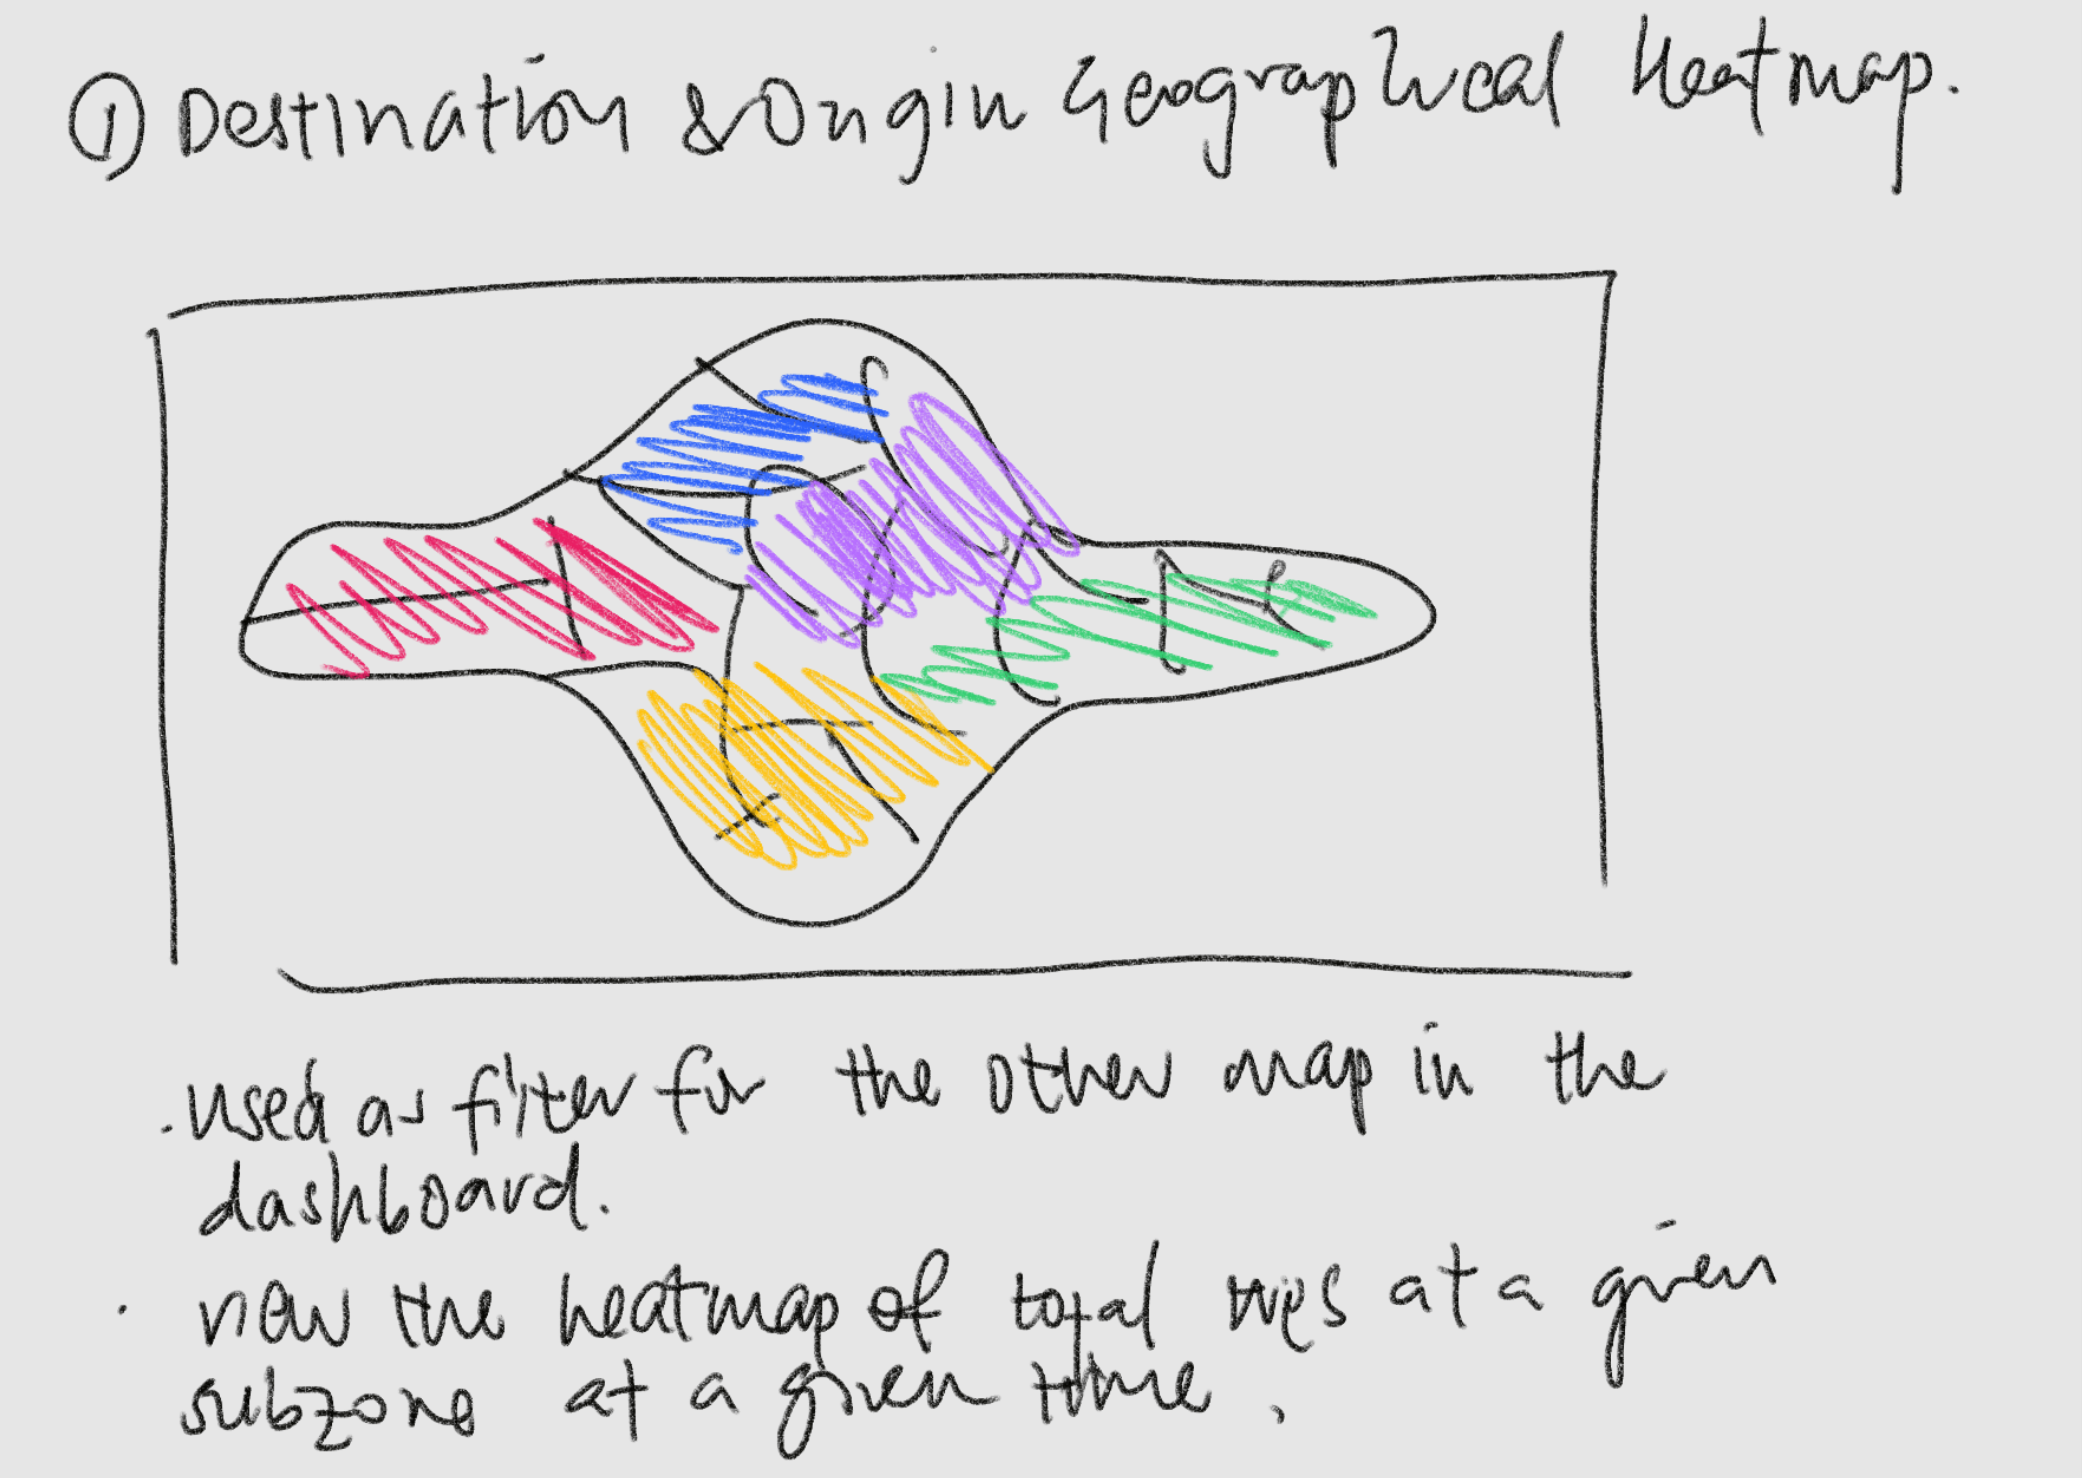 ① Destination & Origin Geographical Heatmap.
· used as filter for the other map in the
dashboard.
· view the heatmap of total trips at a given
subzone at a given time.